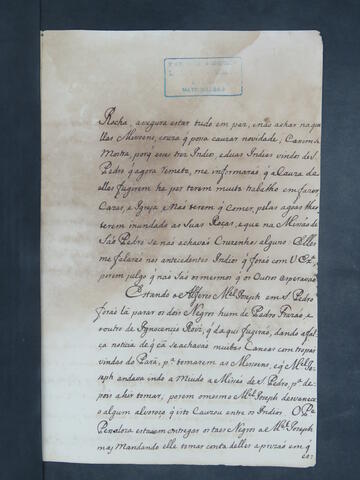 Rocha, asegura estar tudo em paz, enão achar naque
llas Missoens, couza q̃ posa cauzar novidade,
Mostra, porq̃ eses trez Indios, eduas Indias vindos de S.
Pedro q̃ agora remeto, me informaraõ q̃ a Cauza de
elles fugirem he por terem muito trabalho em fazer
Cazas, e Igreja, e não terem q̃ comer, pelas agoas lhe
terem inundado as suas Rosas, e que na Missaõ de
Saõ Pedro se naõ achavaõ Cruzenhos alguns Elles
me falaraõ nos antecedentes Indios q̃ foraõ com V. Ex.ª
porem julgo q̃ naõ saõ os mesmos q̃ os Outros esperavaõ
Estando o Alferes M.el Joseph em S. Pedro
foraõ lá parar os dois Negros hum de Pedro Frazaõ, e
o outro de Ignocencio Roiz, q̃ daqui fugiraõ, dando a fal
ça noticia de q̃ cá se achavaõ muitas Canoas com tropas
vindas do Pará, p.ª tomarem as Missoens, e q̃ M.el Jo
seph andava indo a Miudo a Missaõ de S. Pedro, p.ª de
pois a hir tomar, porem o mesmo M.el Joseph desvaneceo
o algum alvoroço q̃ isto Cauzou entre os Indios. O P.e
Penaloza estava em entregar os taes Negros a M.el Joseph
mas, Mandando elle tomar conta delles a prizaõ em q̃